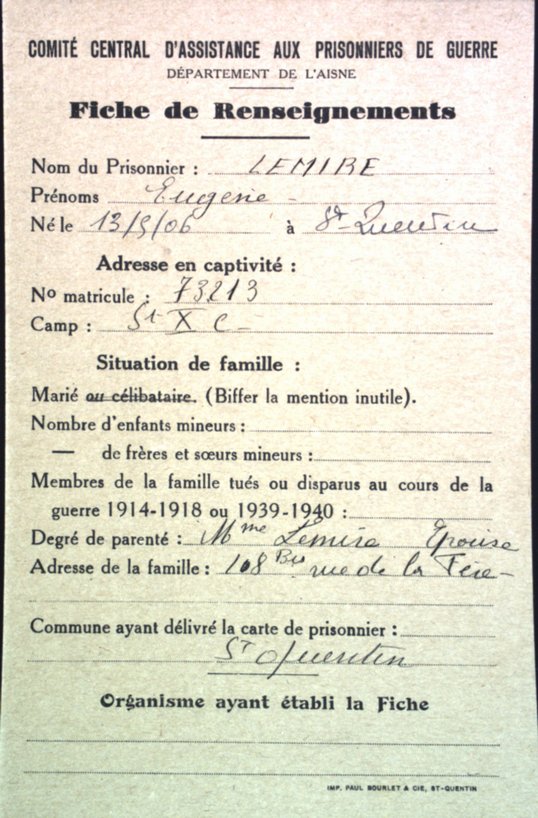 COMITÉ CENTRAL D'ASSISTANCE AUX PRISONNIERS DE GUERRE
DÉPARTEMENT DE L'AISNE
Fiche de Renseignements
Nom du Prisonnier : LEMIRE
Prénoms Eugène
Né le 13/9/06 à St-Quentin
Adresse en captivité :
No matricule : 73213
Camp : St X C
Situation de famille :
Marié ou célibataire. (Biffer la mention inutile).
Nombre d'enfants mineurs :
— de frères et sœurs mineurs :
Membres de la famille tués ou disparus au cours de la
guerre 1914-1918 ou 1939-1940 :
Degré de parenté : Mme Lemire Epouse
Adresse de la famille : 108 Bis rue de la Fère
Commune ayant délivré la carte de prisonnier :
St Quentin
Organisme ayant établi la Fiche
IMP. PAUL BOURLET & CIE, ST-QUENTIN